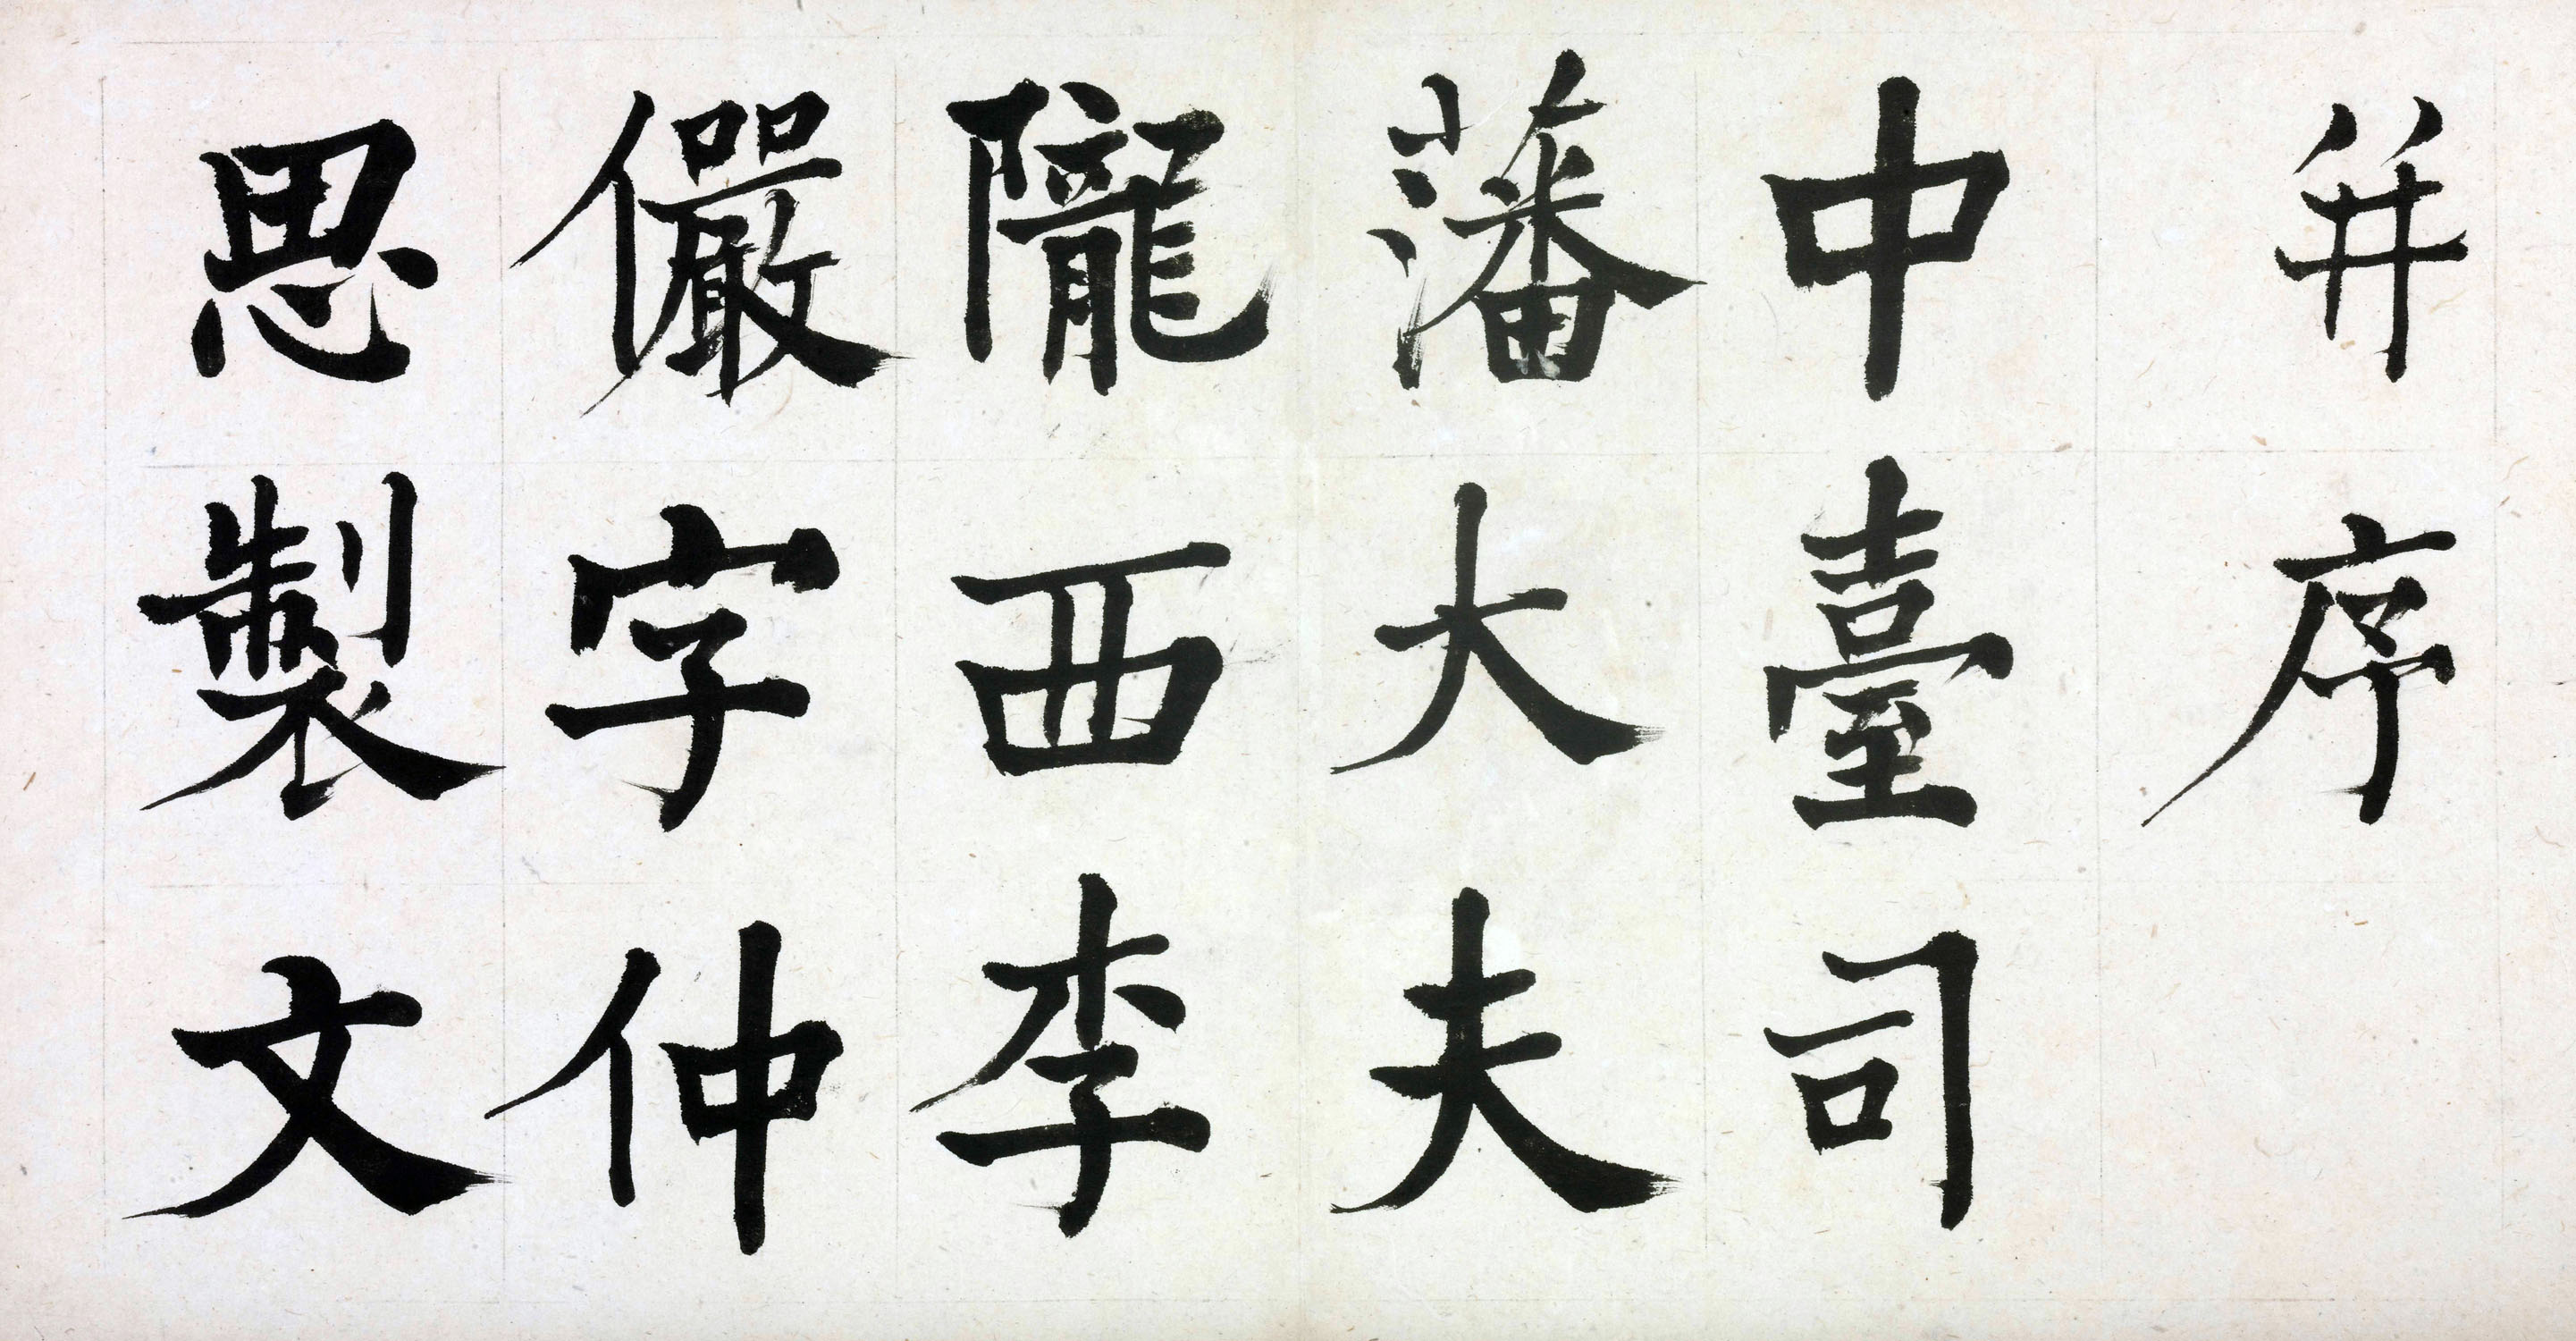 并序
中臺司
藩大夫
隴西李
儼字仲
思製文